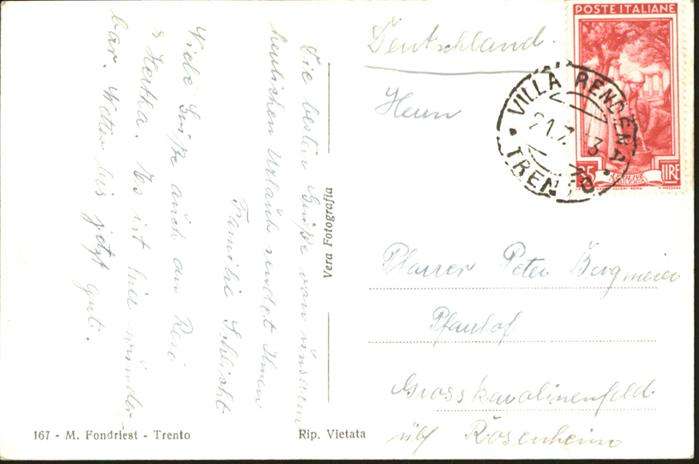 Die besten Grüße von unserem
herrlichen Urlaub sendet Ihnen
Familie Schlicht
Viele Grüße auch an Resi
& Hertha. Es ist hier wunder-
bar. Wetter bis jetzt gut.
Vera Fotografia
167 - M. Fondriest - Trento
Rip. Vietata
POSTE ITALIANE
25 LIRE
VILLA RENDENA
TRENTO
Deutschland
Herrn
Pfarrer Peter Bergmeier
Pfarrhof
Grosskarolinenfeld
üb/ Rosenheim